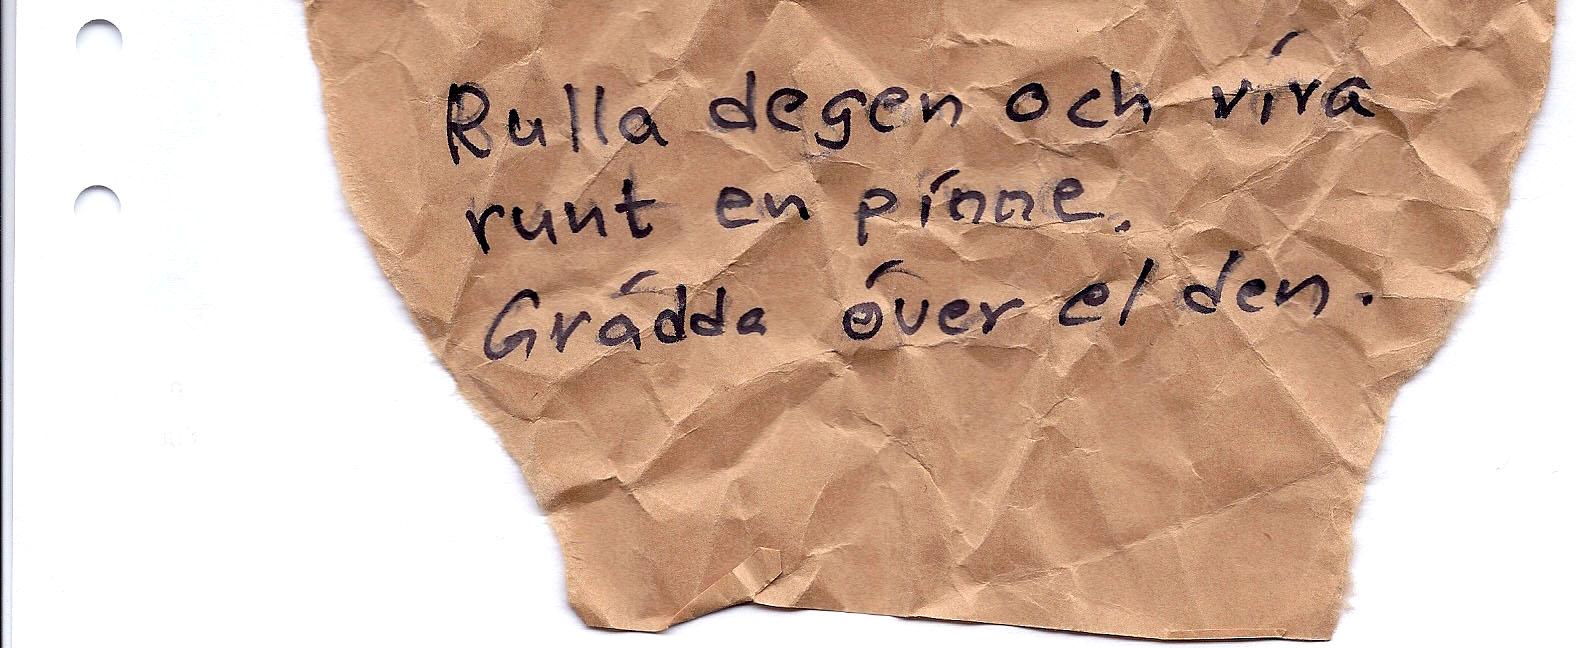 Rulla degen och vira
runt en pinne.
Grädda över elden.